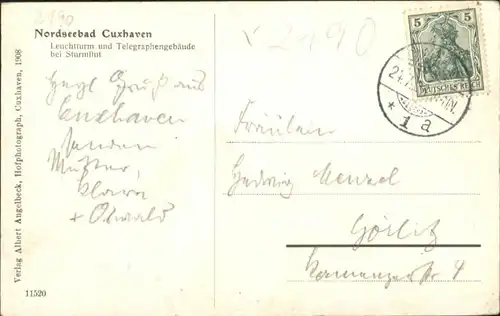 2490
Nordseebad Cuxhaven
Leuchtturm und Telegraphengebäude
bei Sturmflut
Verlag Albert Angelbeck, Hofphotograph, Cuxhaven, 1908
11520
Herzl. Gruß aus
Cuxhaven
senden
Mutter,
Klara
+ Oswald
5 5
DEUTSCHES REICH
* 1 a
Fräulein
Hedwig Menzel
Görlitz
4